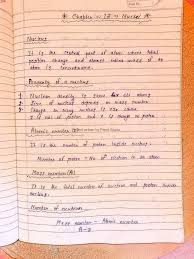 Chapter :- 13 :- Nuclei
Nucleus
It is the central part of atom where total
positive charge and almost entire mass of the
atom is concentrated.
Property of a nucleus
1 Nuclear density is same for all atoms
2 Size of nucleus depends on mass number
3 Charge on
It is due to proton and it is charge on proton
Atomic number
It is the number of proton inside nucleus.
Number of proton = No of electron in an atom
Mass number (A)
It is the total number of neutron and proton inside
nucleus.
Number of neutron
Mass number - Atomic number
A-Z